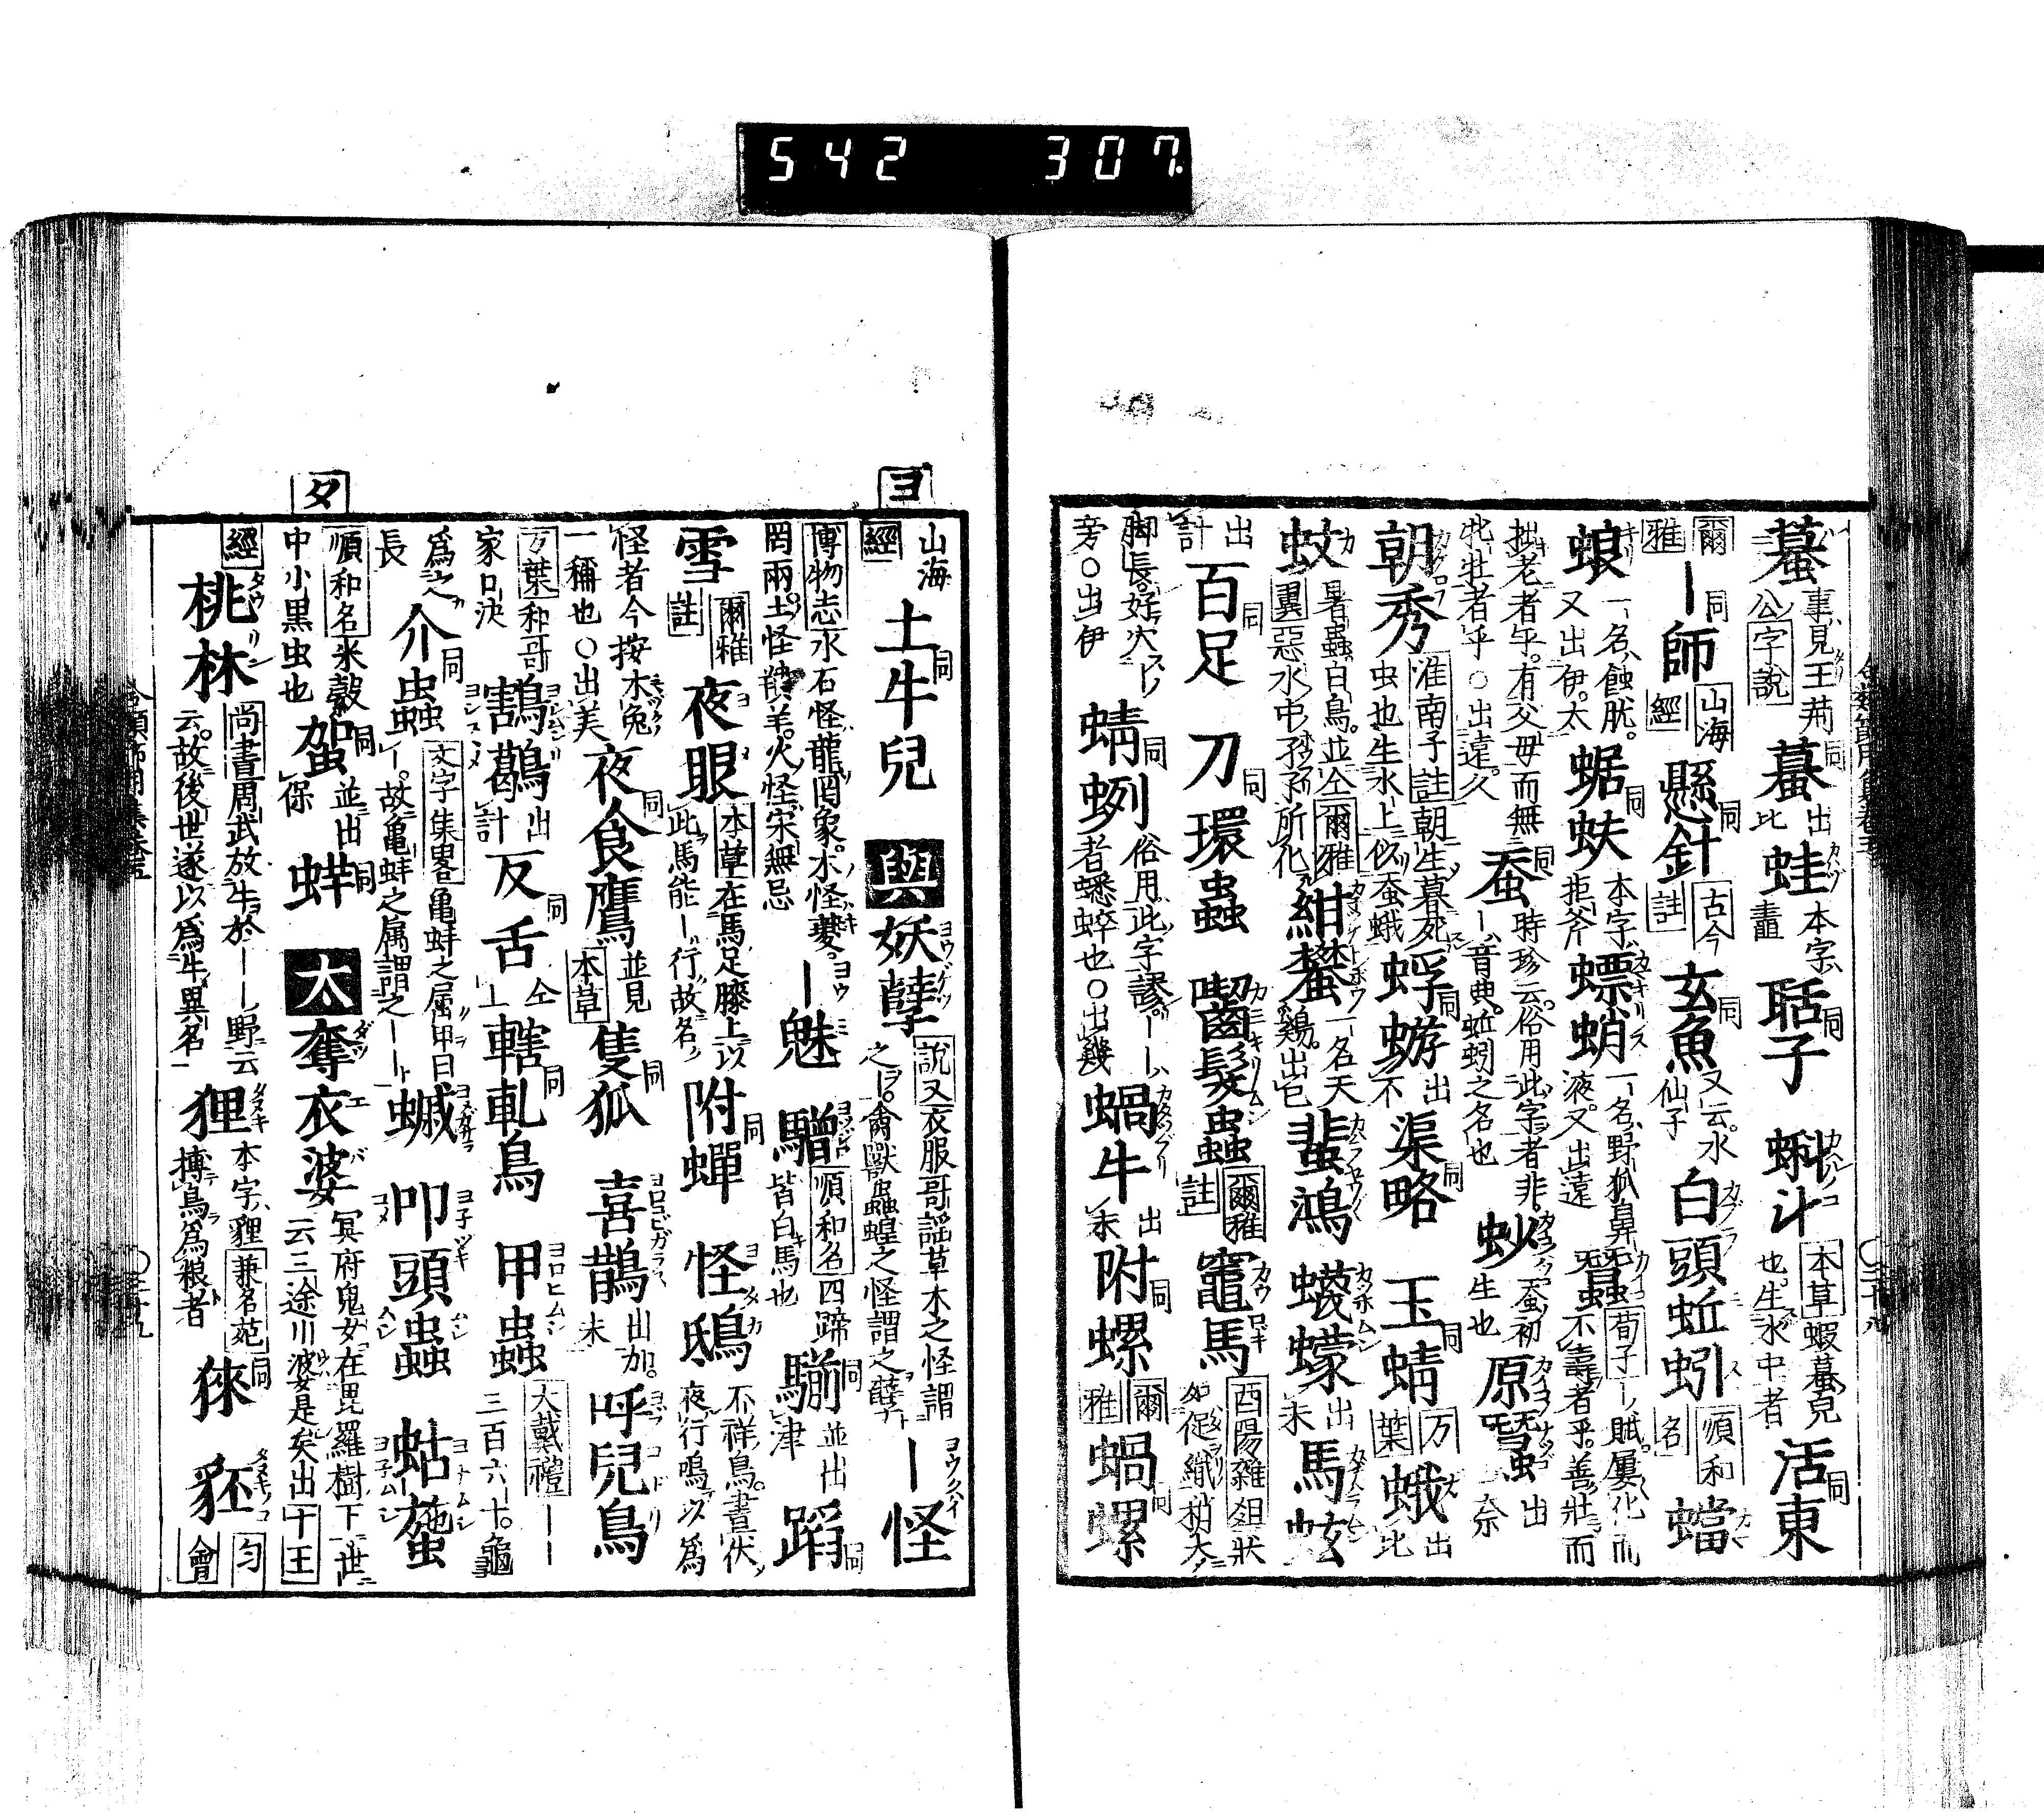 542 307
蟇 事見王荊公字説 蟇 同 出比 蛙 本字䵷 聒子 同 蝌斗 本草蝦蟇兒也生水中者 活東 同
爾雅 ー師 同 山海經 懸針 同 古今註 玄魚 同 又云水仙子 白頭蚯蚓 順和名 蟷
蜋 一名蝕肬又出伊太 蜛蚨 同 本字拒斧 螵蛸 一名野狐鼻液又出遠 蠶 荀子ー賦屢化而不壽者乎善壯而
拙老者乎有父母而無牝牡者乎○出遠久 蚕 同 時珍云俗用此字者非ー音典蚯蚓之名也 䖢 蚕初生也 原蠶 出奈
朝秀 淮南子註朝生暮死虫也生水上似蚕蛾 蜉蝣 同 出不 渠略 同 玉蜻 同 万葉 蛾 出比
蚊 暑蟲白鳥並仝爾雅翼惡水中孑孑所化 紺蠜 一名天鷄出已 蜚鴻 蠛蠓 出末 馬蚿
出計 百足 同 刀環蟲 同 齧髮蟲 爾雅註 竈馬 酉陽雜俎狀如促織稍大
脚長好穴旁○出伊 蜻蛚 同 俗用此字謬ーー者蟋蟀也○出幾 蝸牛 出末 附螺 同 爾雅 蝸螺 同
山海經 土牛兒 同 ヨ 與 妖孽 説文衣服哥謡草木之怪謂之ー禽獸蟲蝗之怪謂之孽 ー怪
博物志水石怪龍罔象木怪夔罔兩土怪羵羊火怪宋無忌 ー魅 驓 順和名四蹄皆白馬也 騚 同 並出津 蹈 同
雪 爾雅註 夜眼 本草在馬足膝上以此馬能ー行故名 附蟬 同 怪鴟 不祥鳥晝伏夜行鳴以爲
怪者今按木兔一稱也○出美 夜食鷹 同 並見本草 隻狐 同 喜鵲 出加末 呼兒鳥
万葉和哥家口決 鶷鶡 出計 反舌 同 仝上 轄軋鳥 同 甲蟲 大戴禮ーー三百六十龜
爲之長 介蟲 同 文字集畧亀蚌之属甲曰ー故亀蚌之属謂之ーー 䗩 叩頭蟲 蛄䗐
順和名米穀中小黒虫也 䖩 同 並出保 蛘 同 タ 太 奪衣婆 冥府鬼女在毘羅樹下世云三途川婆是矣出十王
經 桃林 尚書周武放牛於ーー野云云故後世遂以爲牛異名 狸 本字貍兼名苑搏鳥爲粮者 猍 同 豾 匀會